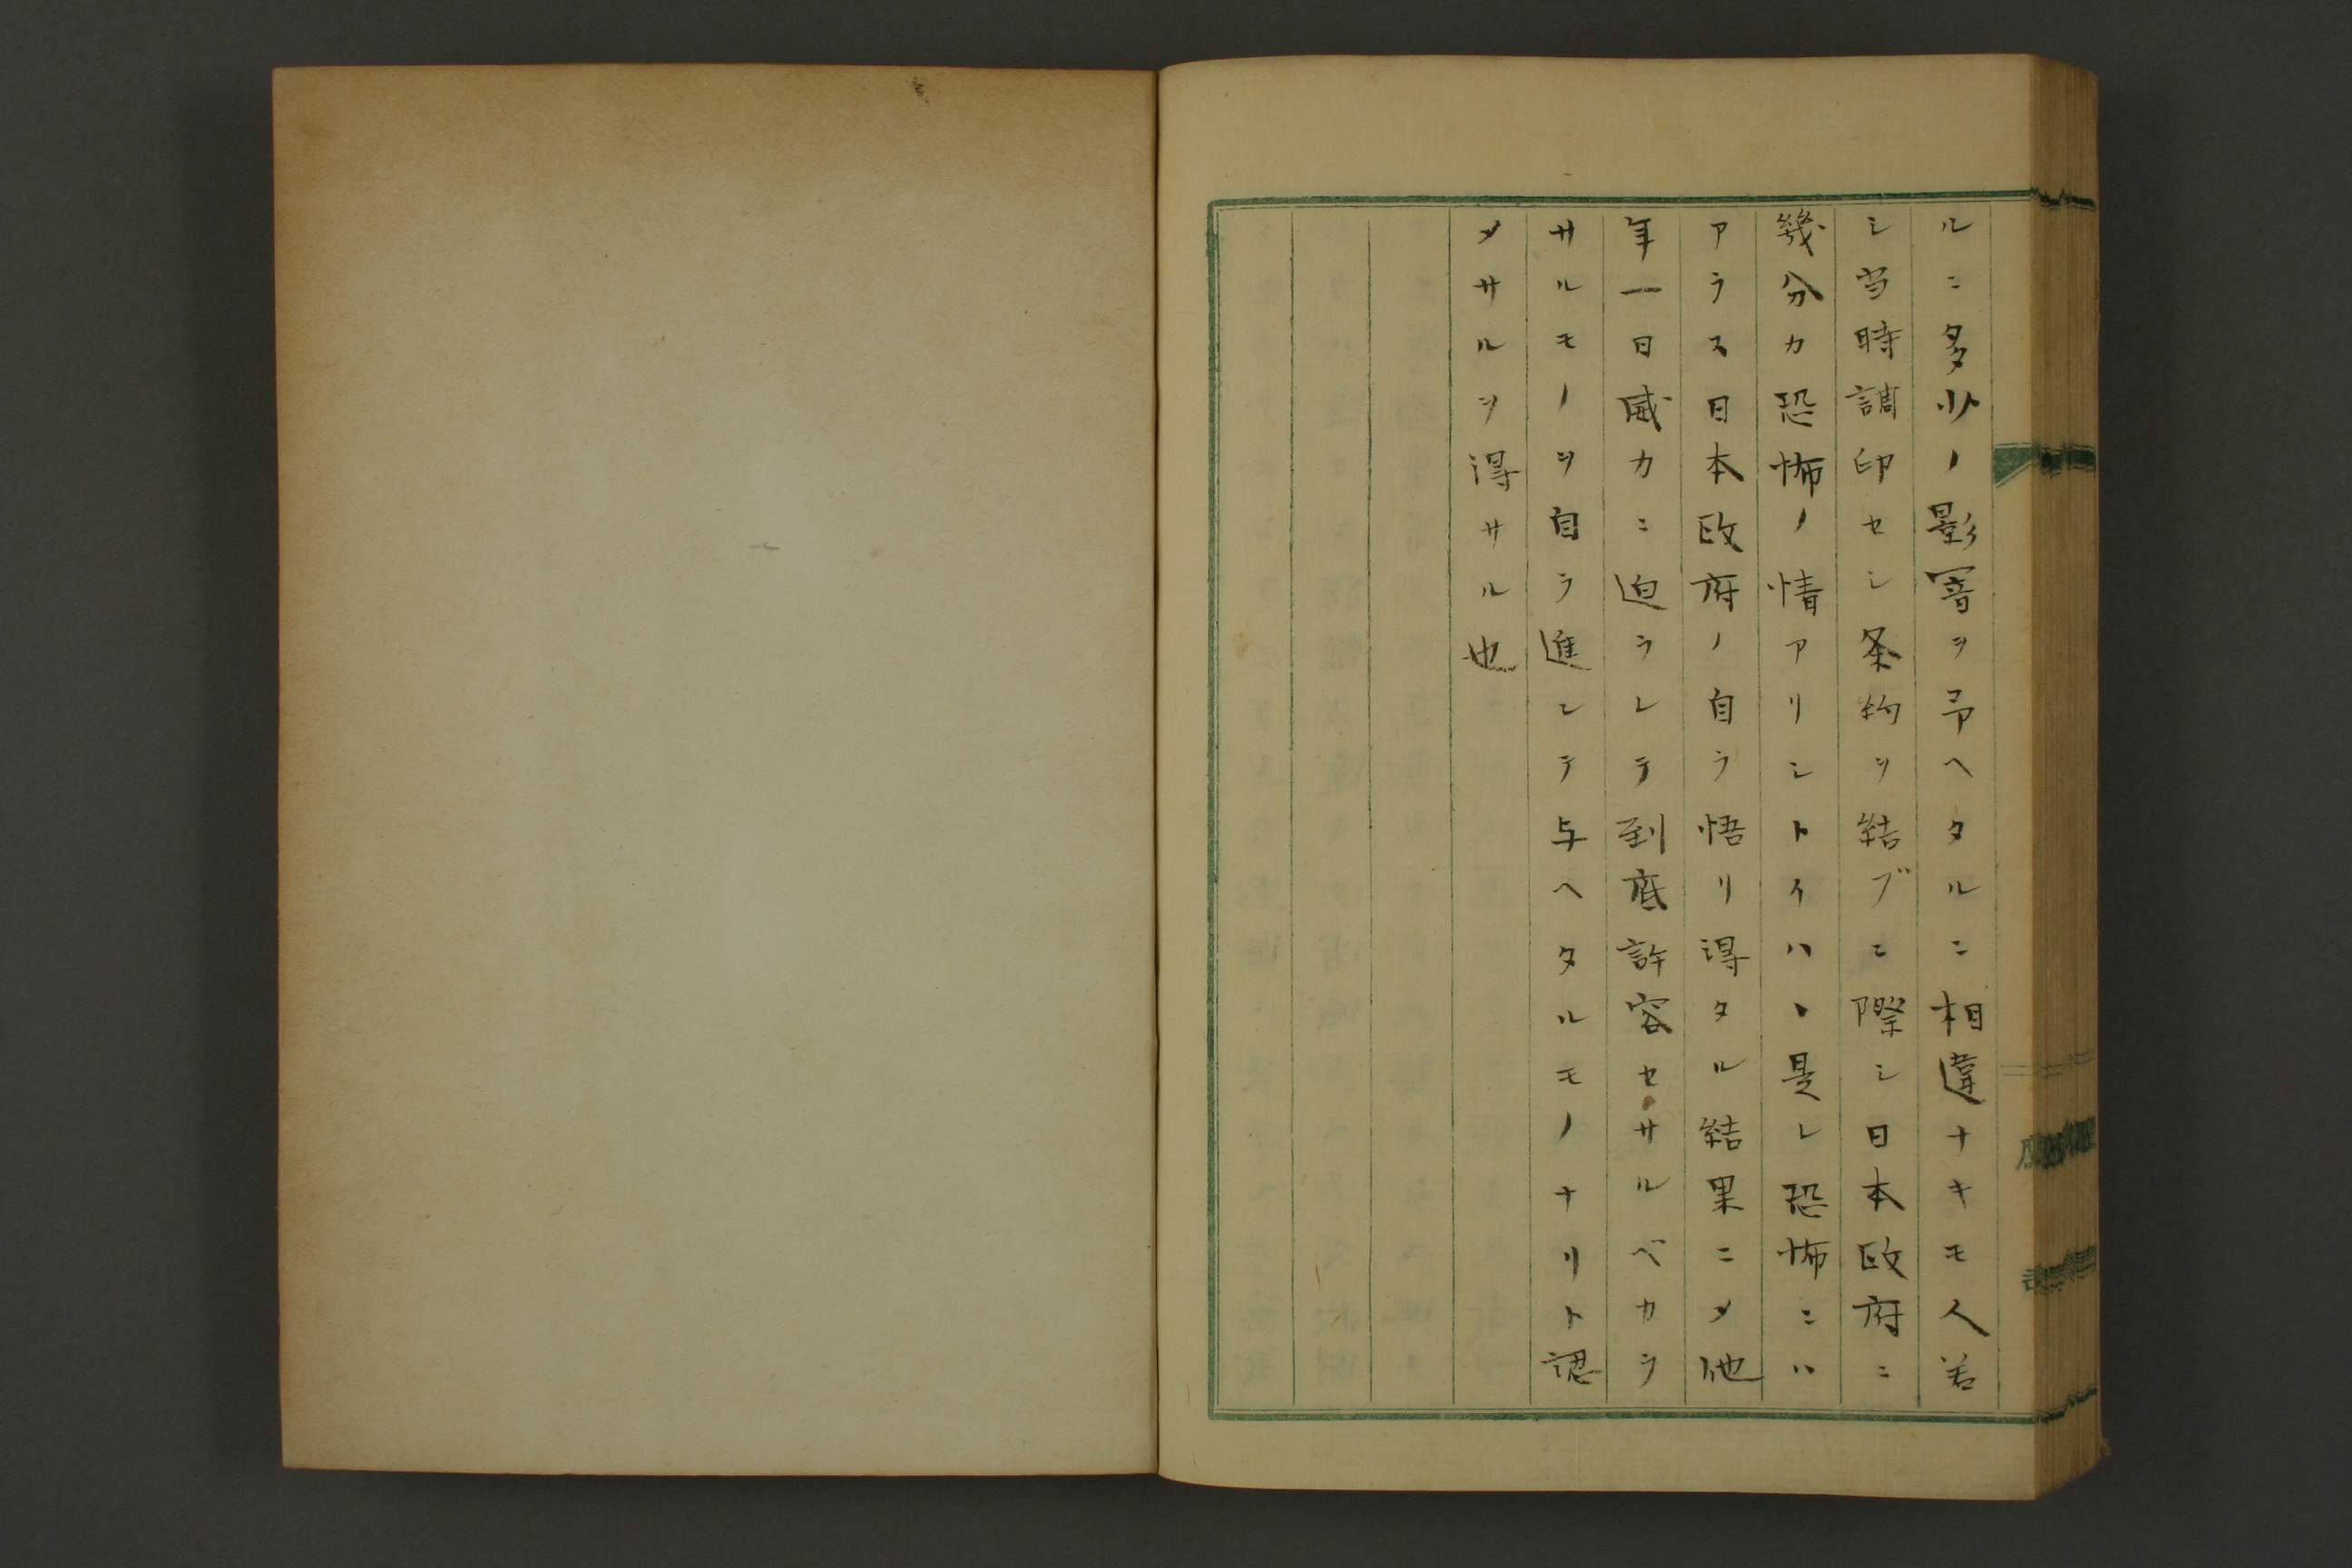 ルニ多少ノ影響ヲ予ヘタルニ相違ナキモ人若
シ当時調印セシ条約ヲ結ブニ際シ日本政府ニ
幾分カ恐怖ノ情アリシトイハヽ是レ恐怖ニハ
アラス日本政府ノ自ラ悟リ得タル結果ニメ他
年一日威力ニ迫ラレテ到底許容セサルベカラ
サルモノヲ自ラ進ンテ与ヘタルモノナリト認
メサルヲ得サル也